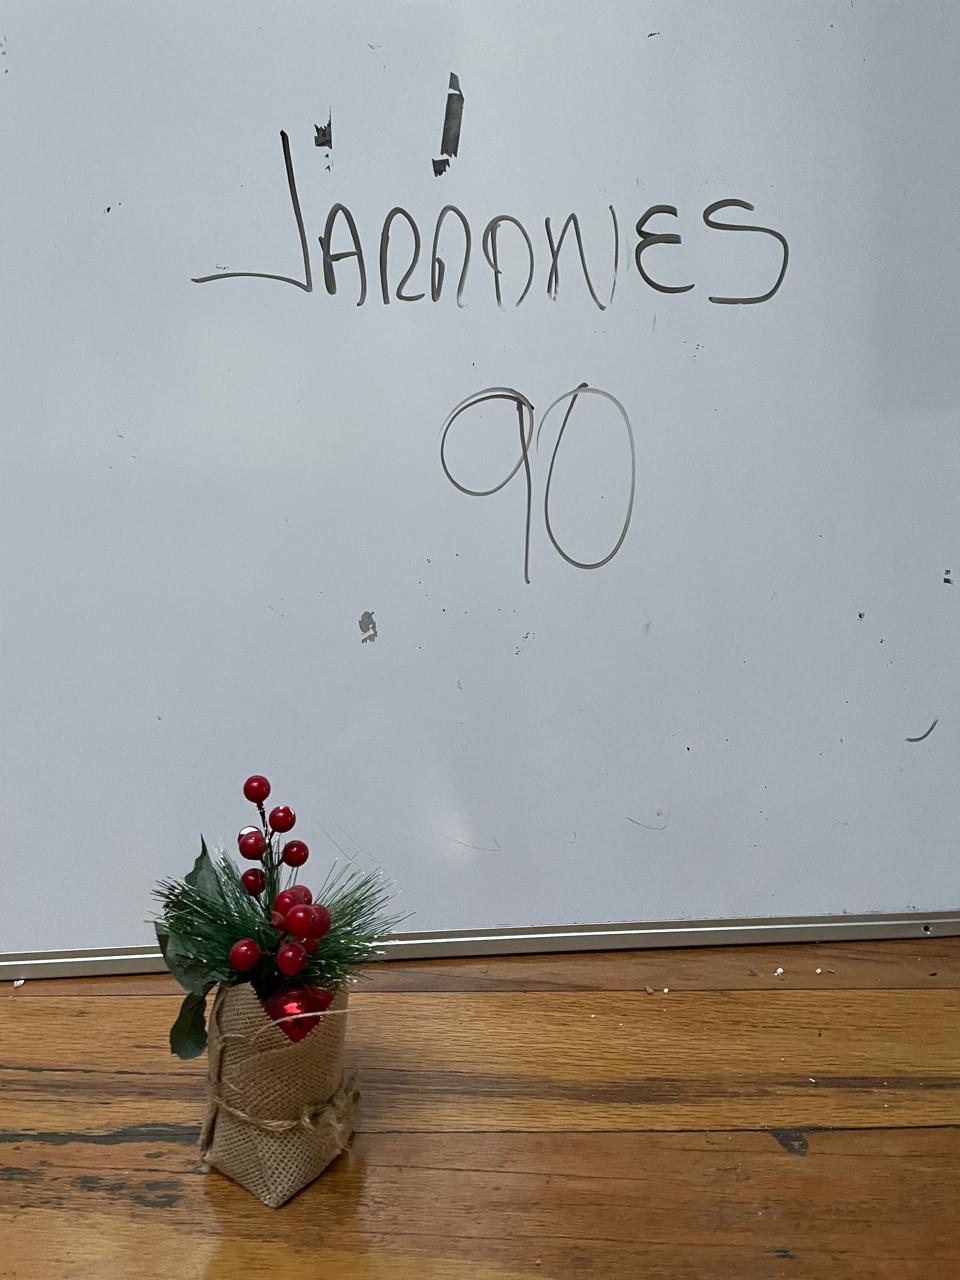 JARRONES
90